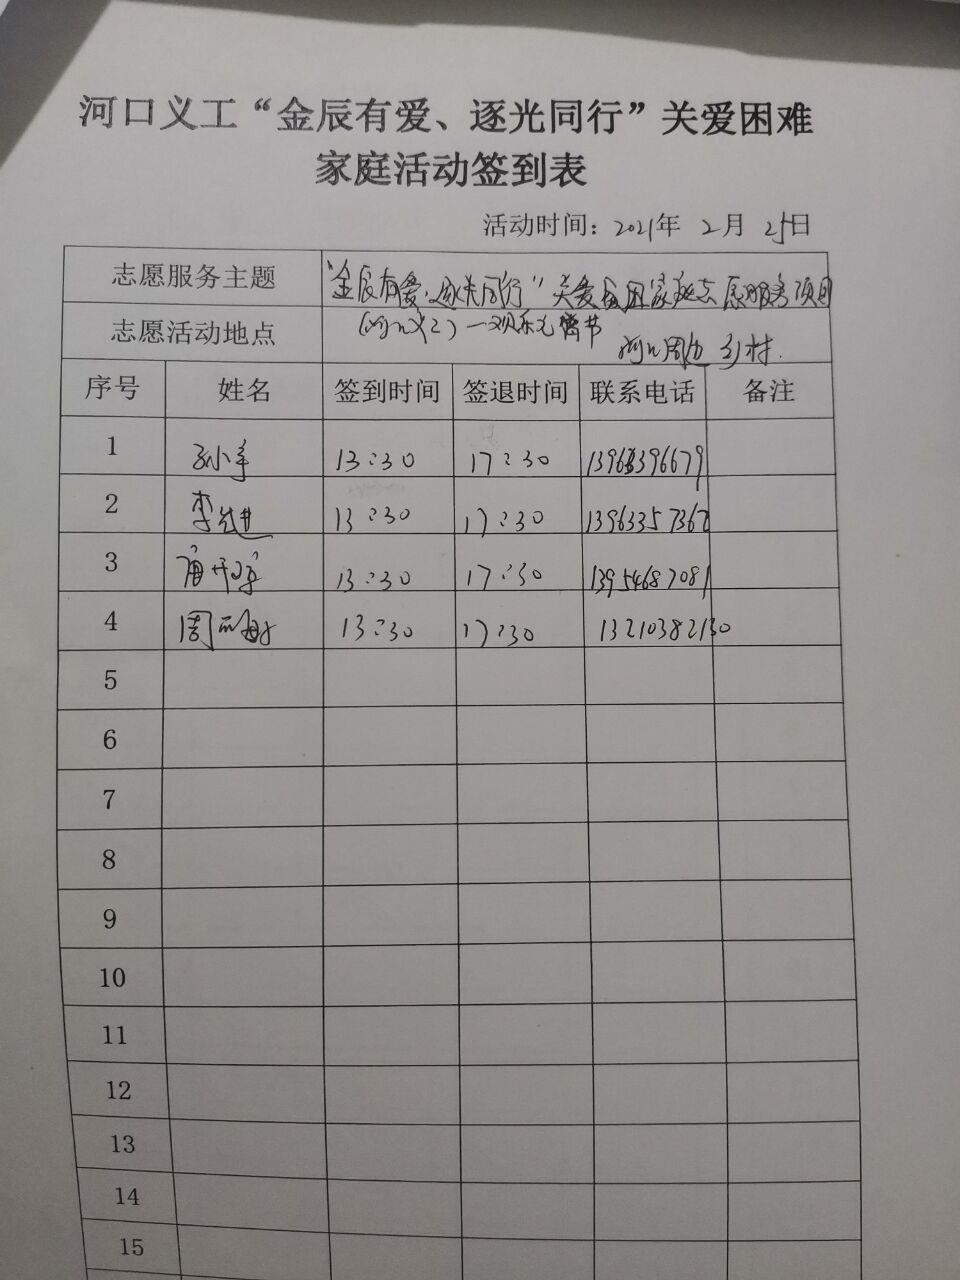 河口义工“金辰有爱、逐光同行”关爱困难
家庭活动签到表
活动时间：2021年 2月 25日
志愿服务主题 “金辰有爱、逐光同行”关爱困难家庭志愿服务项目
(河口义工)—欢乐元宵节
志愿活动地点 河口周边乡村.
序号 姓名 签到时间 签退时间 联系电话 备注
1 孙小 13:30 17:30 13963396679
2 李先进 13:30 17:30 13963357367
3 13:30 17:30 13954687081
4 周丽 13:30 17:30 13210382130
5
6
7
8
9
10
11
12
13
14
15